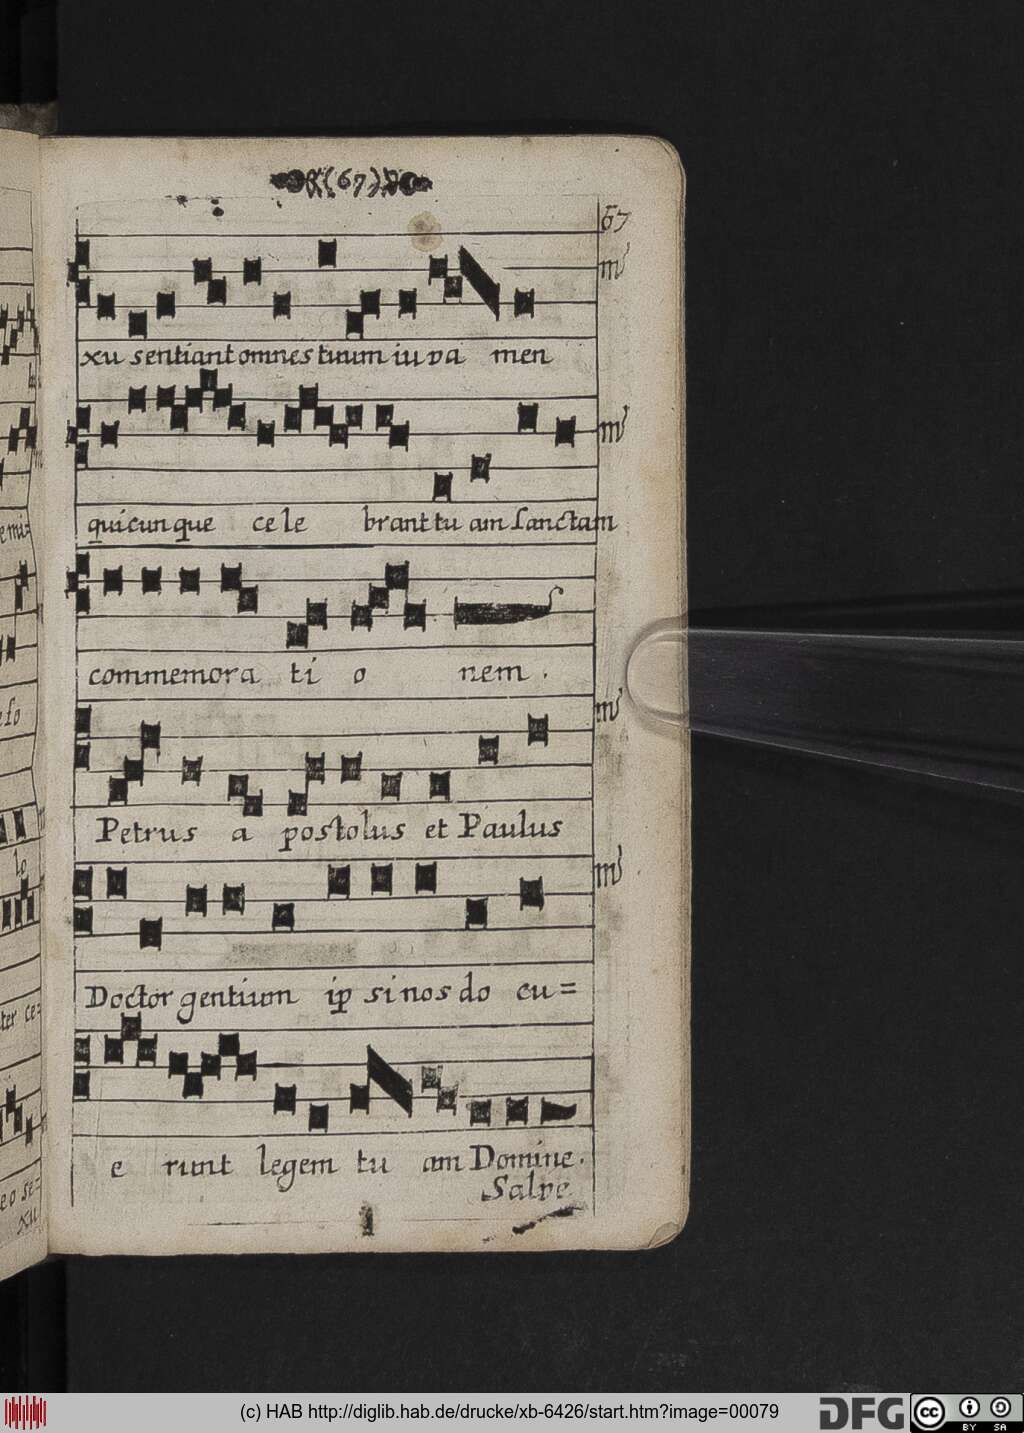 (67)
67
xu sentiant omnes tuum iuva men
quicunque ce le brant tu am sanctam
commemora ti o nem .
Petrus a postolus et Paulus
Doctor gentium ip si nos do cu=
e runt legem tu am Domine.
Salve
emi=
lo
ter ce=
eo se=
xu
(c) HAB http://diglib.hab.de/drucke/xb-6426/start.htm?image=00079
DFG
cc
BY SA